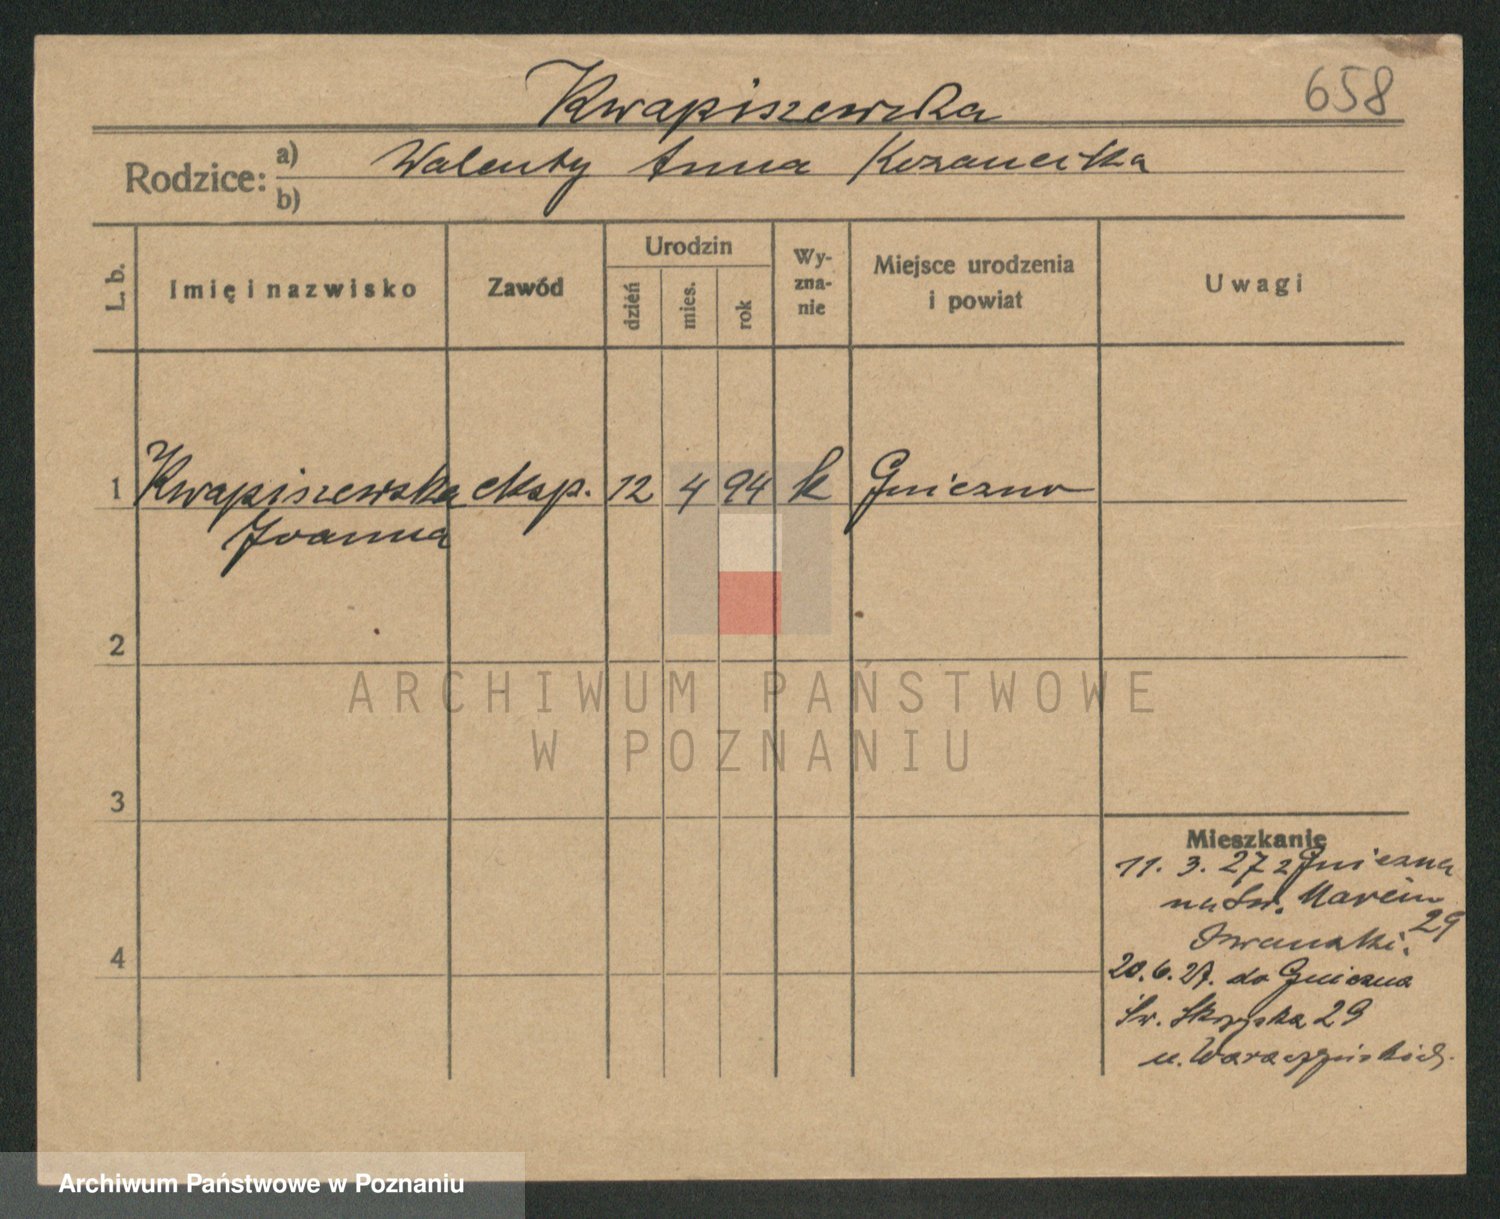 658
Kwapiszewska
Rodzice: a) Walenty Anna
b)
L. b.
Imię i nazwisko
Zawód
Urodzin
dzień
mies.
rok
Wy-
zna-
nie
Miejsce urodzenia
i powiat
Uwagi
1 Kwapiszewska eksp. 12 4 94 k Gniezno
Joanna
2
3
4
Mieszkanie
11. 3. 27 z Gniezna
na Św. Marcin
29
20. 6. 27. do Gniezna
29
u.
ARCHIWUM PAŃSTWOWE
W POZNANIU
Archiwum Państwowe w Poznaniu